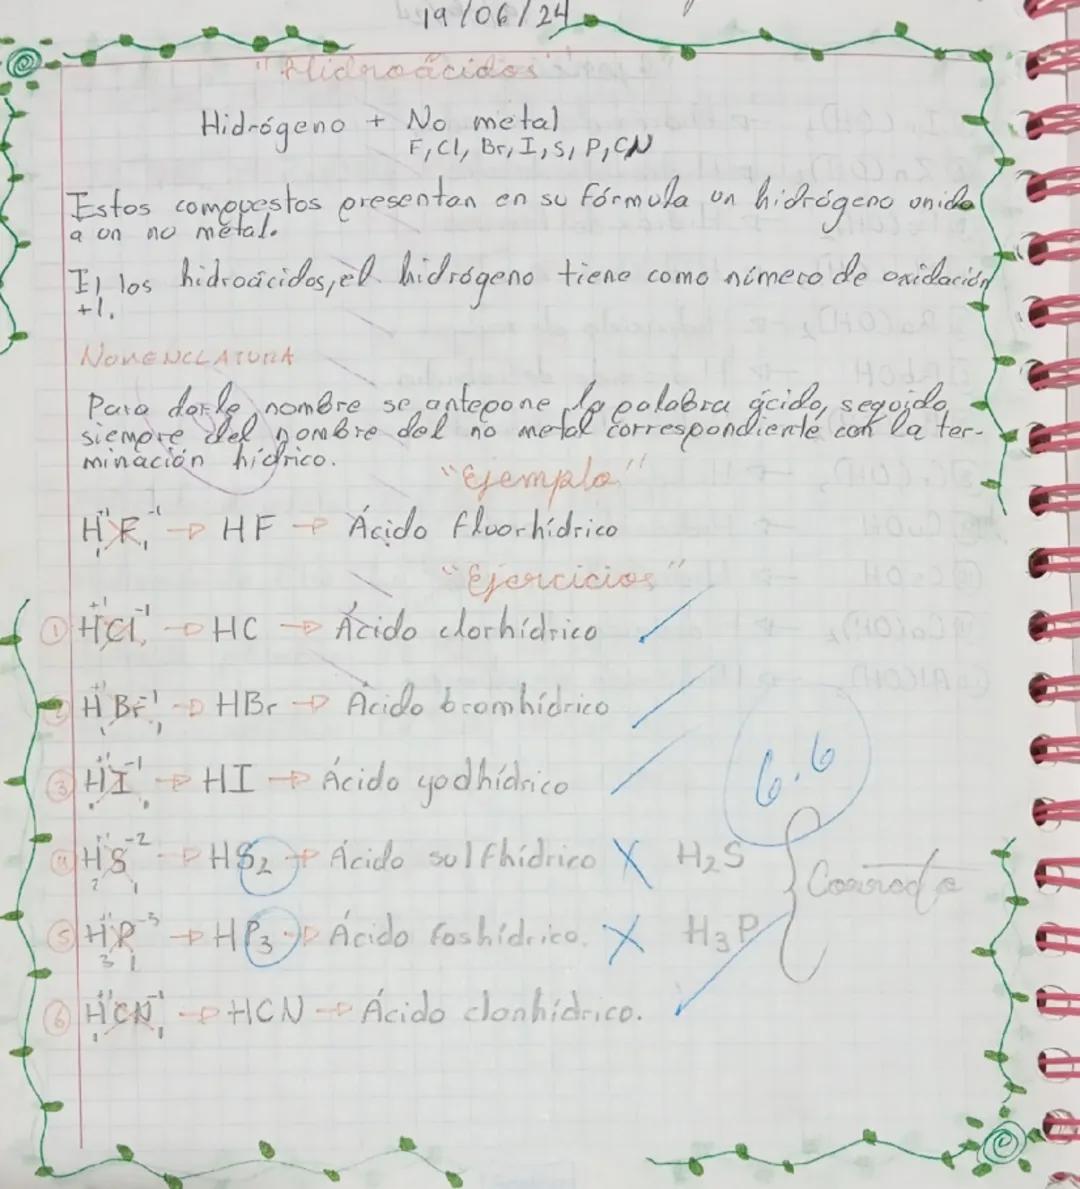 19/06/24
"Hidroácidos"
Hidrógeno + No metal
F, Cl, Br, I, S, P, CN
Estos compuestos presentan en su fórmula un hidrógeno unido
a un no metal.
El los hidroácidos, el hidrógeno tiene como número de oxidación
+1.
NOMENCLATURA
Para darle nombre se antepone la palabra ácido, seguido
siempre del nombre del no metal correspondiente con la ter-
minación hídrico.
"Ejemplo"
H⁺¹₁ F⁻¹₁ → HF → Ácido fluorhídrico
"Ejercicios"
① H⁺¹Cl⁻¹₁ → HC → Ácido clorhídrico
2 H⁺¹₁ Br⁻¹₁ → HBr → Ácido bromhídrico
③ H⁺¹₁ I⁻¹₁ → HI → Ácido yodhídrico
6.6
④ H⁺¹₂ S⁻²₁ → HS₂ → Ácido sulfhídrico X H₂S
⑤ H⁺¹₃ P⁻³₁ → HP₃ → Ácido foshídrico. X H₃P
⑥ H⁺¹₁ CN⁻¹₁ → HCN → Ácido clonhídrico.